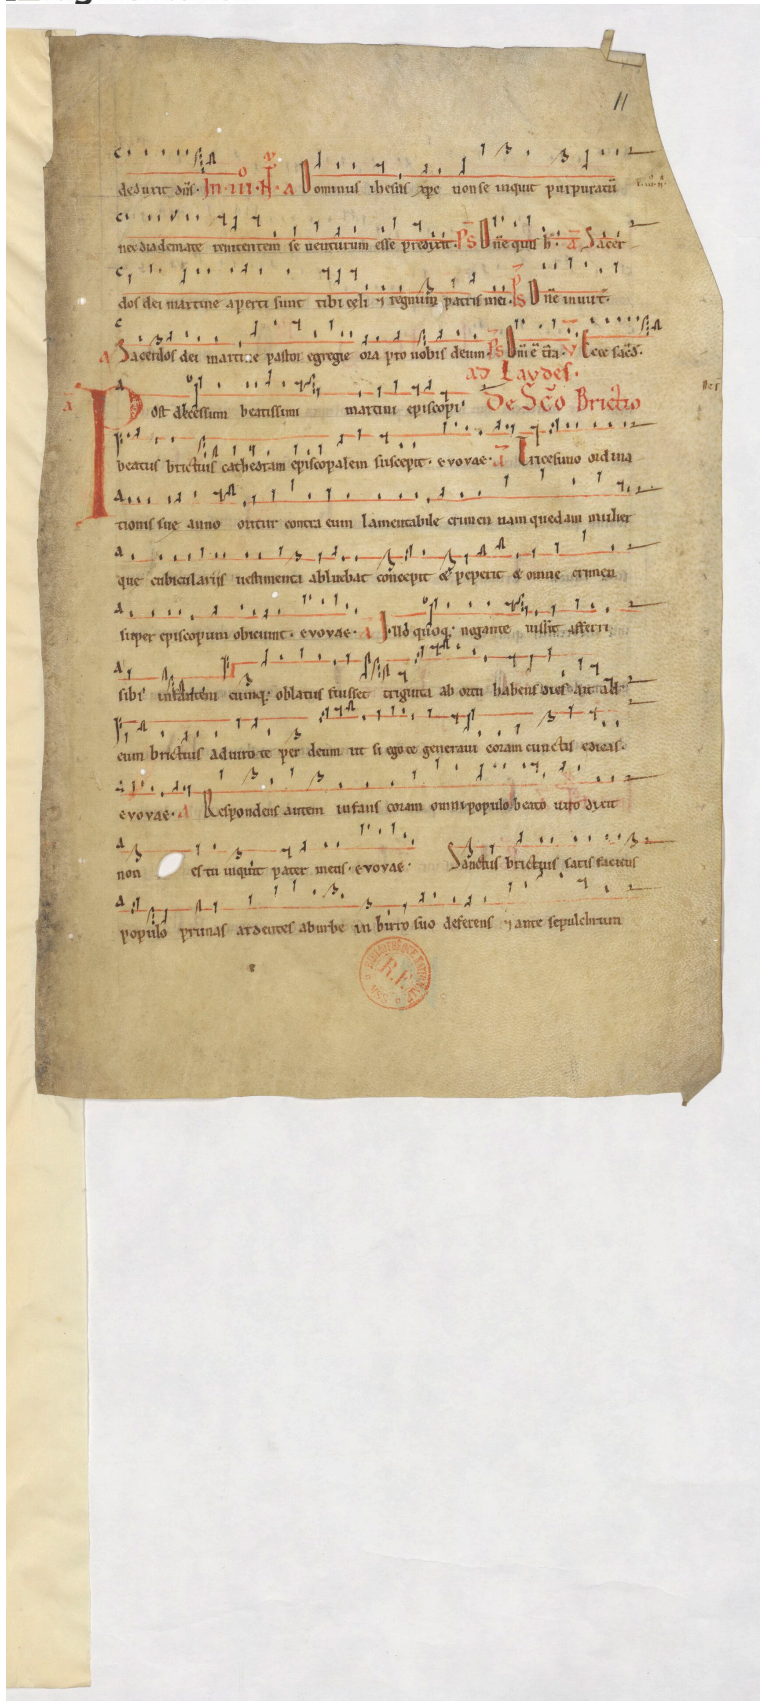 11
deduxit dn̄s. In. iii. N̄. a Dominus ihesus xpc non se inquit purpuratū
nec diademate renitentem se venturum esse predixit. Ps̄ Dn̄e quis h. a Sacer
dos dei martine aperti sunt tibi celi ⁊ regnum patris mei. Ps Dn̄e in uirt̄.
a Sacerdos dei martine pastor egregie ora pro nobis deum. Ps Dn̄i ē t̄ra. v Ecce sac̄s.
ad Laudes.
a Post discessum beatissimi martini episcopi De Sc̄o Brictio
beatus brictius cathedram episcopalem suscepit. evovae. a Tricesimo ordina
tionis sue anno oritur contra eum lamentabile crimen nam quedam mulier
que cubicularijs uestimenta abluebat concepit & peperit & omne crimen
super episcopum obiciunt. evovae. a Illo quoq; negante iussit afferri
sibi infantem cumq; oblatus fuisset triginta ab ortu habens dies ait ad
eum brictius adiuro te per deum ut si ego te generaui coram cunctis edicas.
evovae. a Respondens autem infans coram omni populo beato uiro dixit
non es tu inquit pater meus. evovae. Sanctus brictius satis faciens
populo prunas ardentes ab urbe in birro suo deferens ⁊ ante sepulchrum
BIBLIOTHÈQUE NATIONALE
R.F.